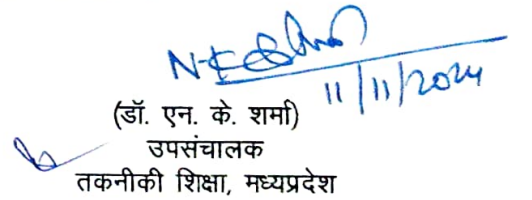 11/11/2024
(डॉ. एन. के. शर्मा)
उपसंचालक
तकनीकी शिक्षा, मध्यप्रदेश